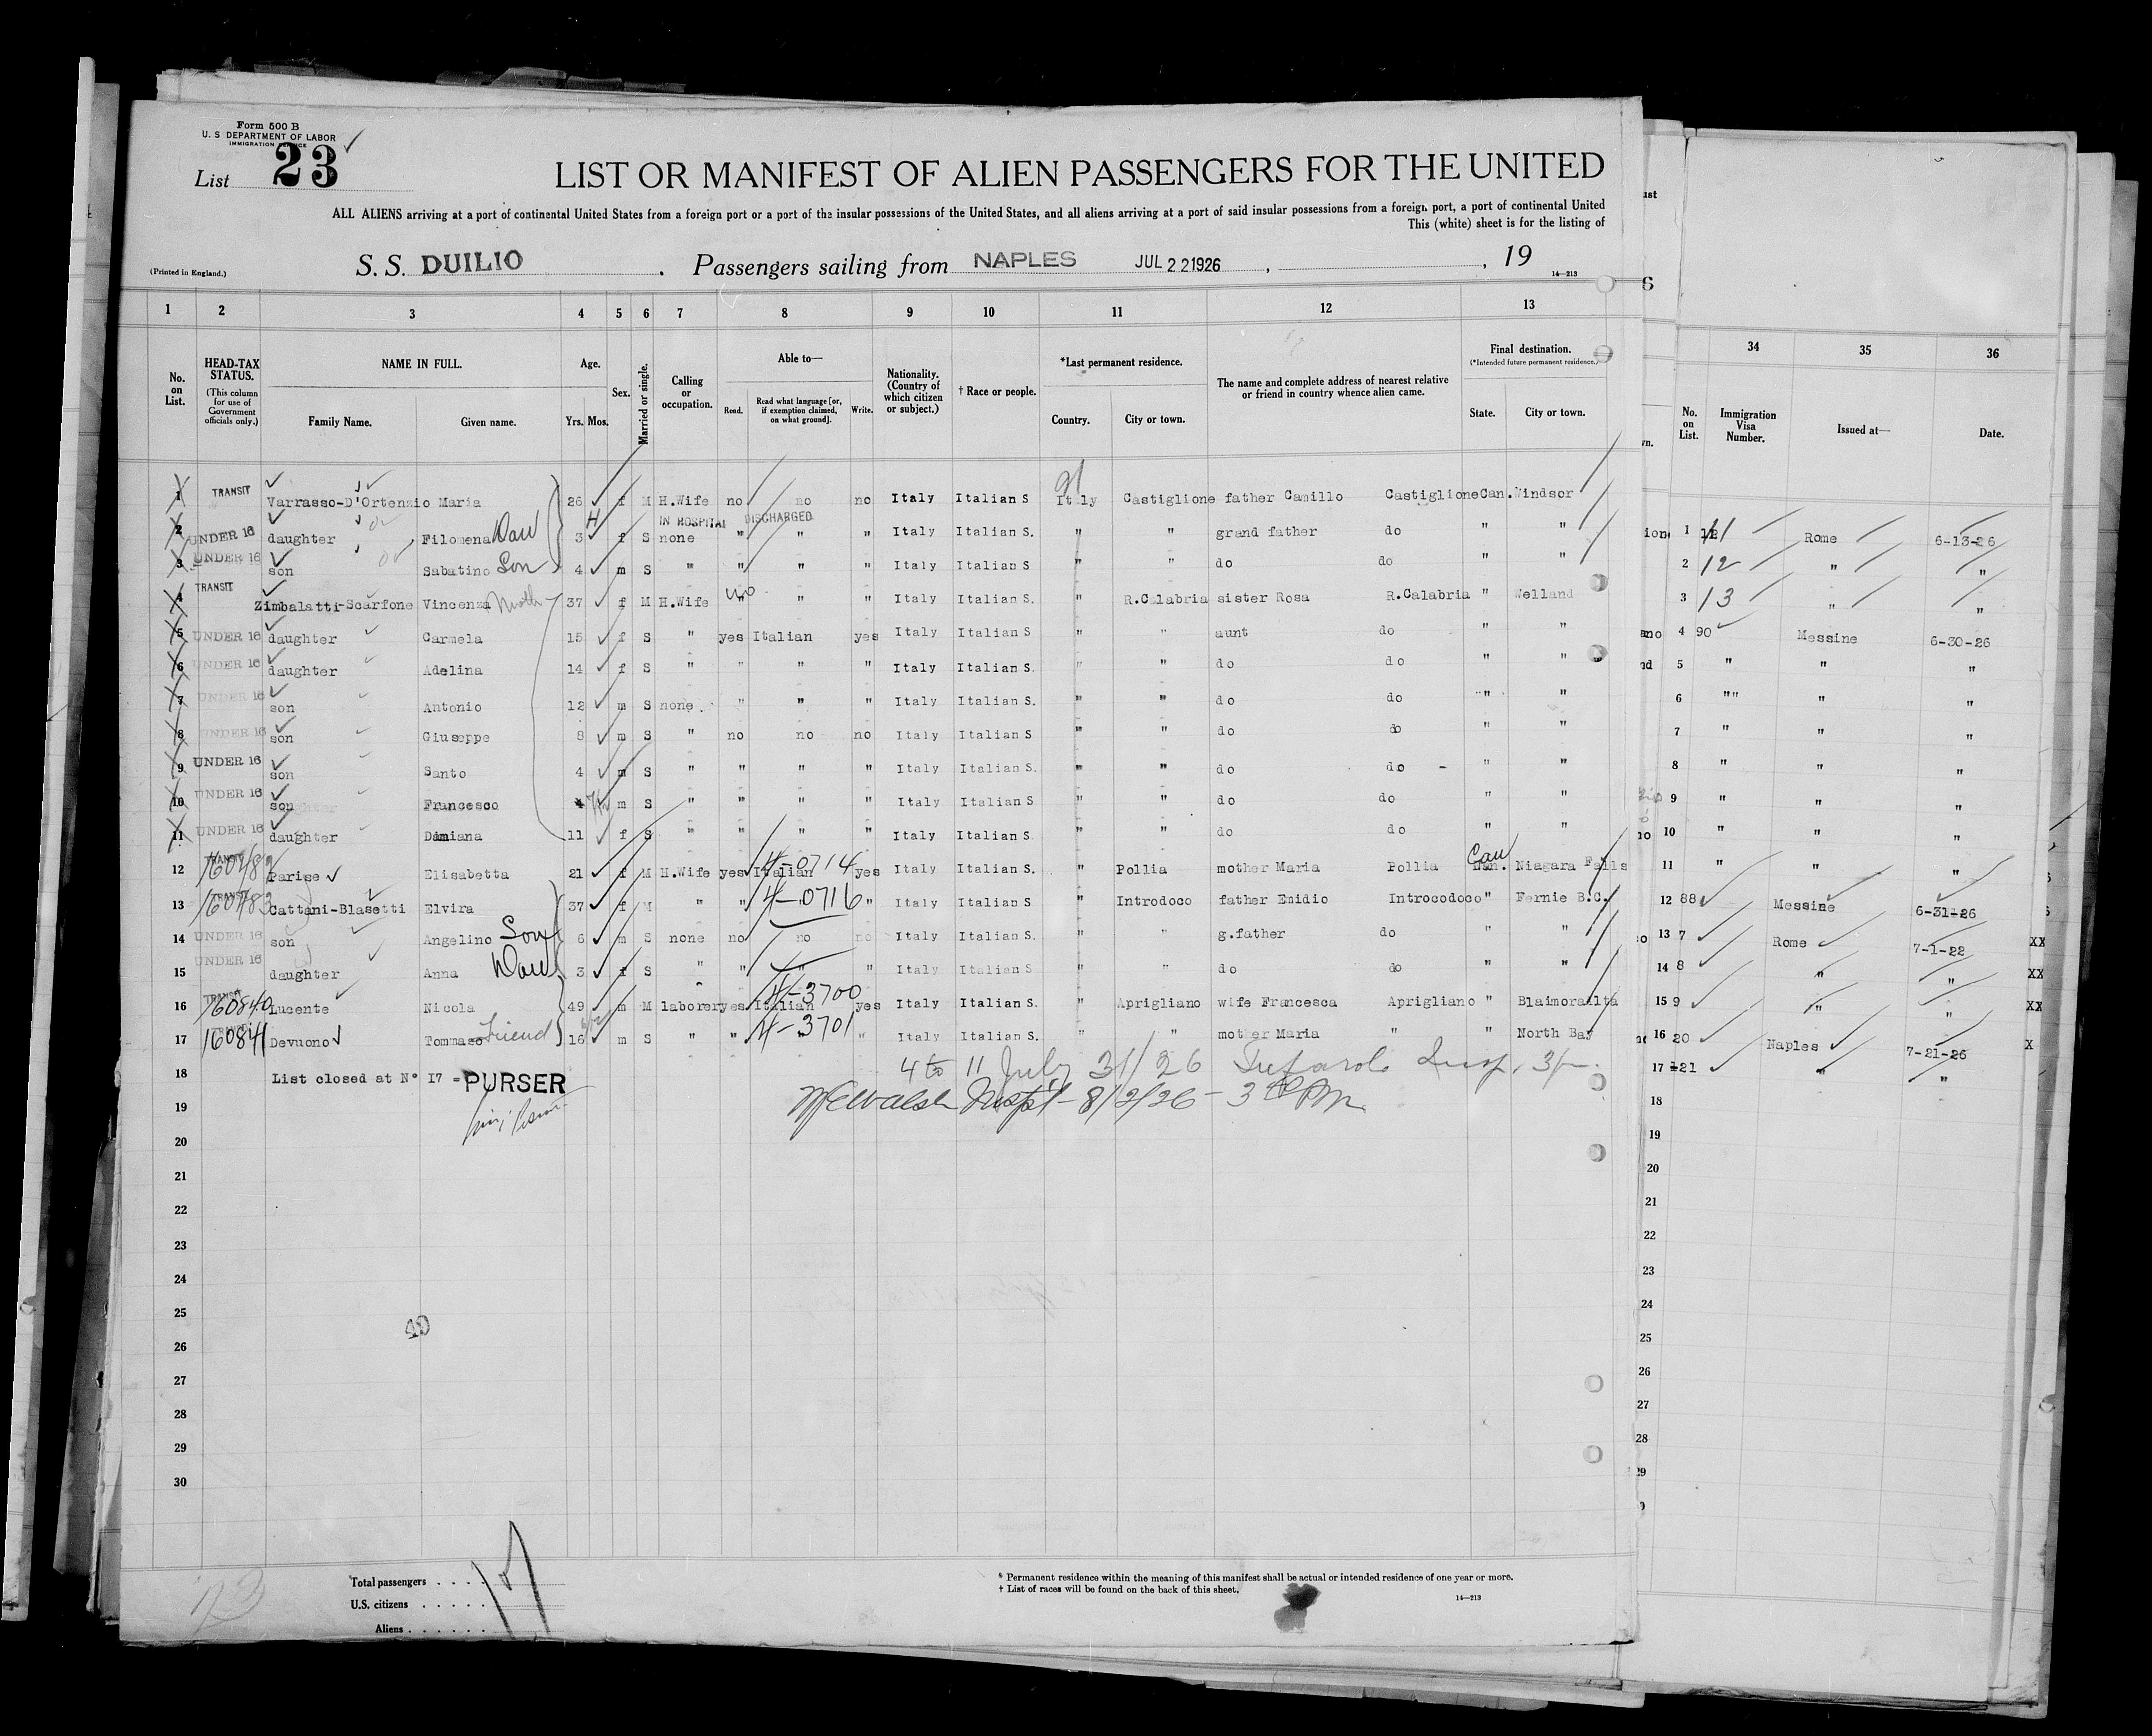 Form 500 B
U. S DEPARTMENT OF LABOR
IMMIGRATION SERVICE
List 23
LIST OR MANIFEST OF ALIEN PASSENGERS FOR THE UNITED
ALL ALIENS arriving at a port of continental United States from a foreign port or a port of the insular possessions of the United States, and all aliens arriving at a port of said insular possessions from a foreign port, a port of continental United
This (white) sheet is for the listing of
(Printed in England.) S. S. DUILIO . Passengers sailing from NAPLES JUL 2 2 1926 , , 19
14—213
1 2 3 4 5 6 7 8 9 10 11 12 13 34 35 36
No. on List.
HEAD-TAX STATUS.
(This column for use of Government officials only.)
NAME IN FULL.
Family Name. Given name.
Age.
Yrs. Mos.
Sex.
Married or single.
Calling or occupation.
Able to—
Read. Read what language [or, if exemption claimed, on what ground]. Write.
Nationality. (Country of which citizen or subject.)
† Race or people.
*Last permanent residence.
Country. City or town.
The name and complete address of nearest relative or friend in country whence alien came.
Final destination.
(*Intended future permanent residence.)
State. City or town.
No. on List. Immigration Visa Number. Issued at— Date.
1 TRANSIT Varrasso-D'Ortenzio Maria 26 f M H.Wife no no no Italy Italian S Italy Castiglione father Camillo Castiglione Can. Windsor
IN HOSPITAL DISCHARGED
2 UNDER 16 daughter Filomena Dau 3 4 f S none " " " Italy Italian S. " " grand father do " "
3 UNDER 16 son Sabatino Son 4 m S " " " " Italy Italian S. " " do do " "
4 TRANSIT Zimbalatti-Scarfone Vincenza 37 f M H.Wife no " " " Italy Italian S. " R.Calabria sister Rosa R.Calabria " Welland
5 UNDER 16 daughter Carmela 15 f S " yes Italian yes Italy Italian S " " aunt do " "
6 UNDER 16 daughter Adelina 14 f S " " " " Italy Italian S. " " do do " "
7 UNDER 16 son Antonio 12 m S none. " " " Italy Italian S. " " do do " "
8 UNDER 16 son Giuseppe 8 m S " no no no Italy Italian S " " do do " "
9 UNDER 16 son Santo 4 m S " " " " Italy Italian S. " " do do - " "
10 UNDER 16 son Francesco m S " " " " Italy Italian S " " do do " "
11 UNDER 16 daughter Damiana 11 f S " " " " Italy Italian S. " " do do " "
12 TRANSIT Parise Elisabetta 21 f M H.Wife yes Italian 4-0714 yes Italy Italian S. " Pollia mother Maria Pollia Can. Can Niagara Falls
13 TRANSIT 160483 Cattani-Blasetti Elvira 37 f M " " " 4-0716 " Italy Italian S " Introdoco father Emidio Introcodoco " Fernie B.C.
14 UNDER 16 son Angelino Son 6 m S none no no no Italy Italian S. " " g.father do " "
15 UNDER 16 daughter Anna Dau 3 f S " " " " Italy Italian S " " do do " "
16 TRANSIT 160840 Lucente Nicola 49 m M laborer yes Italian 4-3700 yes Italy Italian S. " Aprigliano wife Francesca Aprigliano " Blaimorailta
17 160841 Devuono Tommaso Friend 16 m S " " 4-3701 " Italy Italian S. " " mother Maria " " North Bay
18 List closed at N° I7 - PURSER 4 to 11 July 31/26 Insp.
19 8/2/26 - 3 PM
20
21
22
23
24
25
26
27
28
29
30
40
1 11 Rome 6-13-26
2 12 " "
3 13 " "
4 90 Messine 6-30-26
5 " " "
6 "" " "
7 " " "
8 " " "
9 " " "
10 " " "
11 " " "
12 88 Messine 6-31-26
13 7 Rome 7-1-22 XX
14 8 " " XX
15 9 " " XX
16 20 Naples 7-21-26 X
17 21 " "
18
19
20
21
22
23
24
25
26
27
28
29
Total passengers . . . . 17
U.S. citizens . . . . .
Aliens . . . . . .
* Permanent residence within the meaning of this manifest shall be actual or intended residence of one year or more.
† List of races will be found on the back of this sheet.
14—213